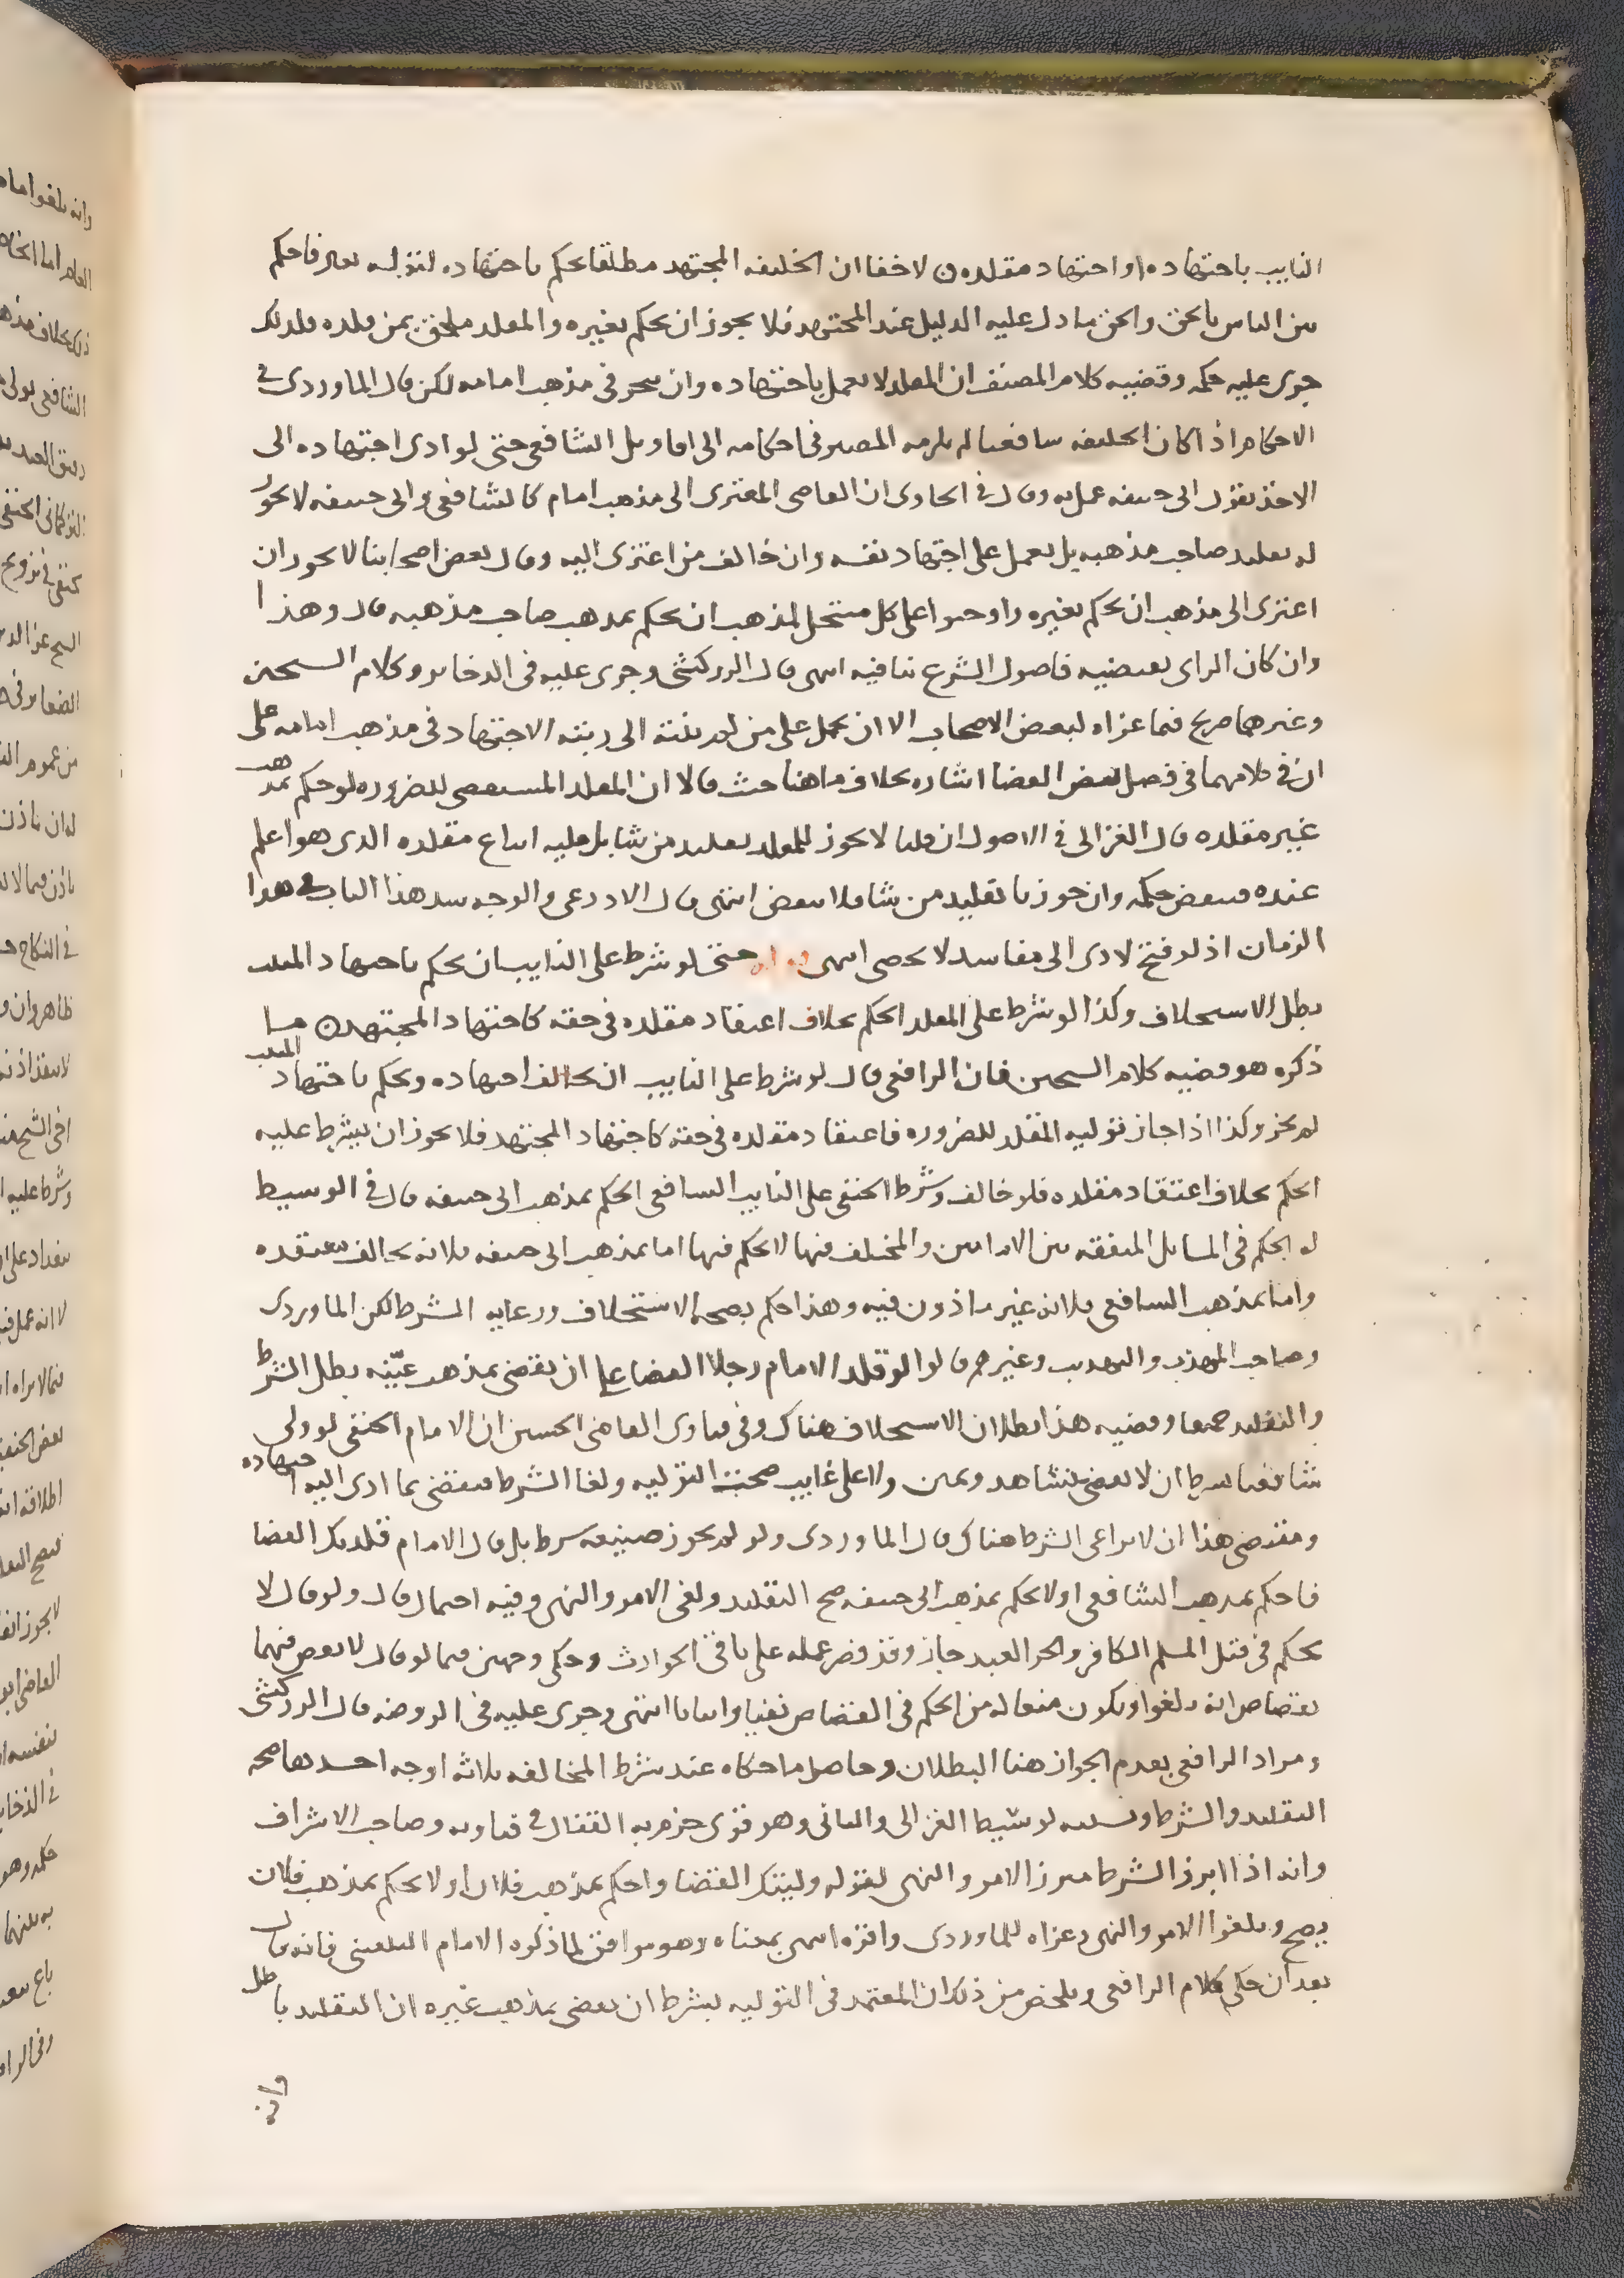 النايب باجتهاده او اجتهاد مقلده ن لاخفا ان الخليفه المجتهد مطلقا يحكم باجتهاده لقوله تعالى فاحكم
بين الناس بالحق والحق ما دل عليه الدليل عند المجتهد فلا يجوز ان يحكم بغيره والمقلد ملحق بمن قلده فلذلك
جرى عليه حكمه وقضيه كلام المصنف ان المقلد لا يعمل باجتهاده وان تبحر في مذهب امامه لكن قال الماوردى في
الاحكام اذا كان الخليفه شافعيا لم يلزمه المصير في احكامه الى اقاويل الشافعي حتى لو ادى اجتهاده الى
الاخذ بقول ابى حنيفه عمل به وقال في الحاوى ان القاضى المعتزى الى مذهب امام كالشافعي وابى حنيفه لا يجوز
له تقليد صاحب مذهبه بل يعمل على اجتهاد نفسه وان خالف من اعتزى اليه وقال بعض اصحابنا لا يجوز ان
اعتزى الى مذهب ان يحكم بغيره واوجبوا على كل منتحل لمذهب ان يحكم بمذهب صاحب مذهبه قال وهذا
وان كان الراى يقتضيه فاصول الشرع تنافيه انتهى قال الزركشى وجرى عليه في الدخاير وكلام الشيخين
وغيرهما صريح فيما عزاه لبعض الاصحاب الا ان يحمل على من لم ينته الى رتبة الاجتهاد في مذهب امامه على
ان في كلامهما في فصل نقض القضا اشاره بخلاف ما هنا حيث قالا ان المقلد المستقضى للضروره لو حكم بمذهب
غير مقلده قال الغزالى في الاصول ان قلنا لا يجوز للمقلد تقليد من شا بل عليه اتباع مقلده الذى هو اعلم
عنده فينقض حكمه وان جوزنا تقليد من شا فلا ينقض انتهى قال الاذرعى والوجه سد هذا الباب في هذا
الزمان اذ لو فتح لادى الى مفاسد لا تحصى انتهى حتى لو شرط على النايب ان يحكم باجتهاد المنيب
بطل الاستخلاف وكذا لو شرط على المقلد الحكم بخلاف اعتقاد مقلده في حقه كاجتهاد المجتهد ن ما
ذكره هو قضيه كلام الشيخين فان الرافعى قال لو شرط على النايب ان يخالف اجتهاده ويحكم باجتهاد المنيب
لم يجز وكذا اذا جاز توليه المقلد للضروره فاعتقاد مقلده في حقه كاجتهاد المجتهد فلا يجوز ان يشرط عليه
الحكم بخلاف اعتقاد مقلده فلو خالف وشرط الحنفى على النايب الشافعى الحكم بمذهب ابى حنيفه قال في الوسيط
له الحكم في المسايل المتفقه بين الامامين والمختلف فيها لا يحكم فيها اما بمذهب ابى حنيفه فلانه يخالف معتقده
واما بمذهب الشافعى فلانه غير ماذون فيه وهذا حكم بصحه الاستخلاف ورعايه الشرط لكن الماوردى
وصاحب المهذب والتهذيب وغيرهم قالوا لو قلد الامام رجلا القضا على ان يقضى بمذهب عيّنه بطل الشرط
والتقليد جميعا وقضيه هذا بطلان الاستخلاف هناك وفي فتاوى القاضى الحسين ان الامام الحنفى لو ولى
شافعيا بشرط ان لا يقضى بشاهد ويمين ولا على غايب صحت التوليه ولغا الشرط فيقضى بما ادى اليه اجتهاده
ومقتضى هذا ان لا يراعى الشرط هناك قال الماوردى ولو لم تجر صيغه شرط بل قال الامام قلدتك القضا
فاحكم بمذهب الشافعى او لا تحكم بمذهب ابى حنيفه صح التقليد ولغى الامر والنهى وفيه احتمال قال ولو قال لا
تحكم في قتل المسلم الكافر والحر العبد جاز وقد قصر عمله على باقى الحوادث وحكى وجهين فيما لو قال لا تقض فيهما
بقصاص انه يلغوا ويكون منعا له من الحكم في القصاص نفيا واثباتا انتهى وجرى عليه في الروضه قال الزركشى
ومراد الرافعى بعدم الجواز هنا البطلان وحاصل ما حكاه عند شرط المخالفه ثلاثة اوجه احدها صحه
التقليد والشرط ونسبه لوسيط الغزالى والثانى وهو قوى جزم به القفال في فتاويه وصاحب الاشراف
وانه اذا ابرز الشرط مبرز الامر والنهى لقوله وليتك القضا واحكم بمذهب فلان او لا تحكم بمذهب فلان
يصح ويلغوا الامر والنهى وعزاه للماوردى واقره انتهى بمعناه وهو موافق لما ذكره الامام البلقينى فانه قال
بعد ان حكى كلام الرافعى وتلخص من ذلك ان المعتمد في التوليه بشرط ان يقضى بمذهب غيره ان التقليد باطل
وانه